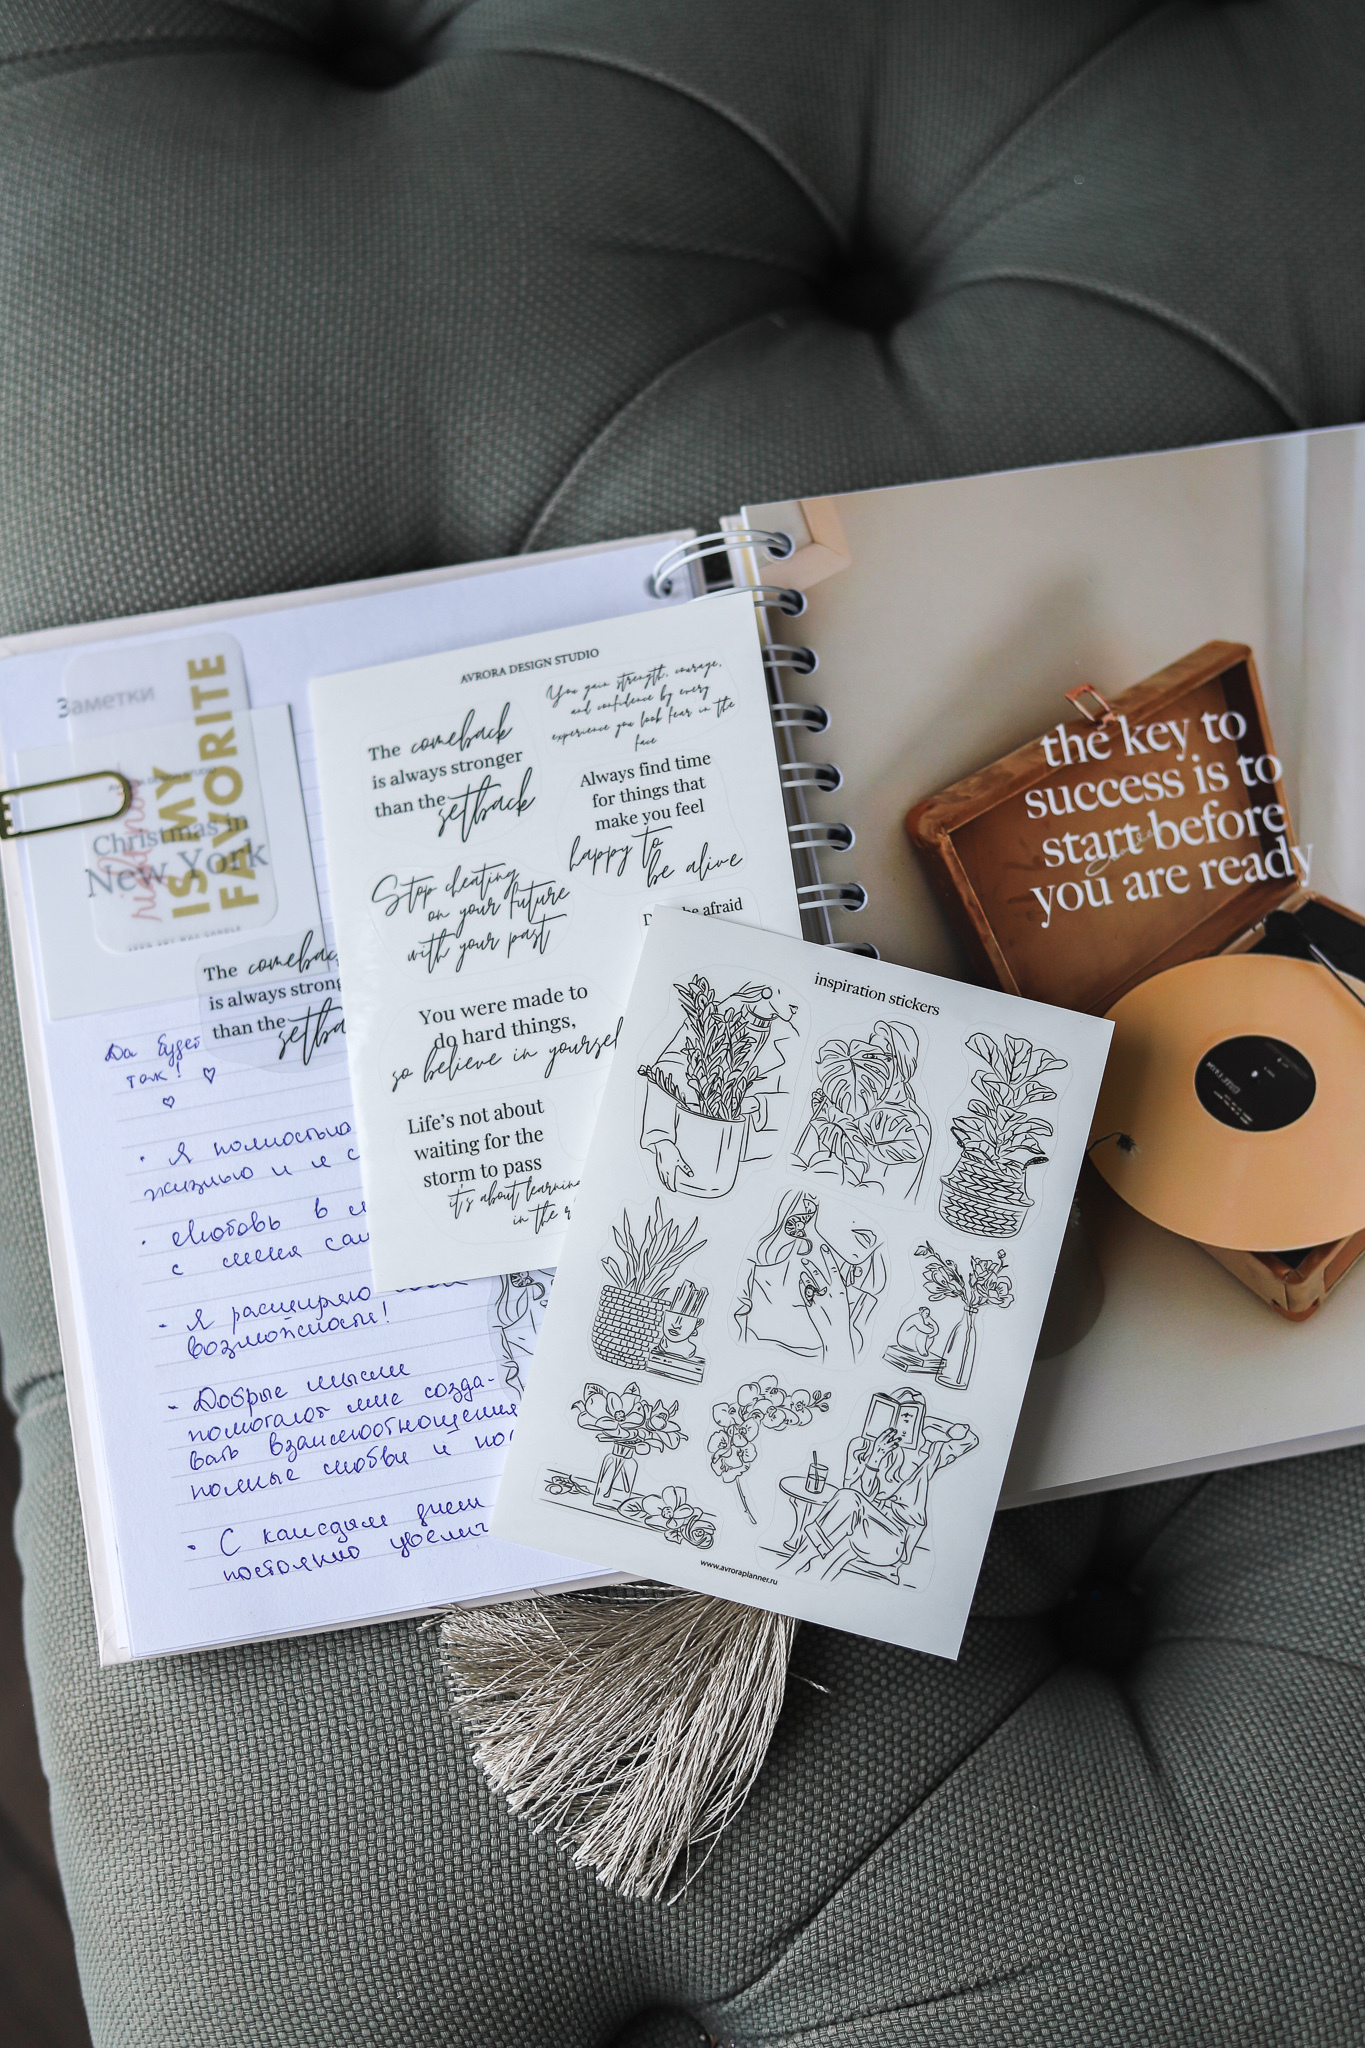 Заметки
right now
IS MY
FAVORITE
Christmas in
New York
The comeback
is always strong
than the setba
Да будет
так! ♡
♡
· Я полностью
жизнью и я с
· Любовь в м
с меня сам
- Я расширяю свои
возможности!
- Добрые мысли
помогают мне созда-
вать взаимоотношения
полные любви и по
· С каждым днем
постоянно увелич
AVRORA DESIGN STUDIO
The comeback
is always stronger
than the setback
You gain strength, courage,
and confidence by every
experience you look fear in the
face
Always find time
for things that
make you feel
happy to
be alive
Stop cheating
on your future
with your past
be afraid
You were made to
do hard things,
so believe in yourself
Life's not about
waiting for the
storm to pass
it's about learning
in the r
inspiration stickers
www.avroraplanner.ru
the key to
success is to
start before
you are ready